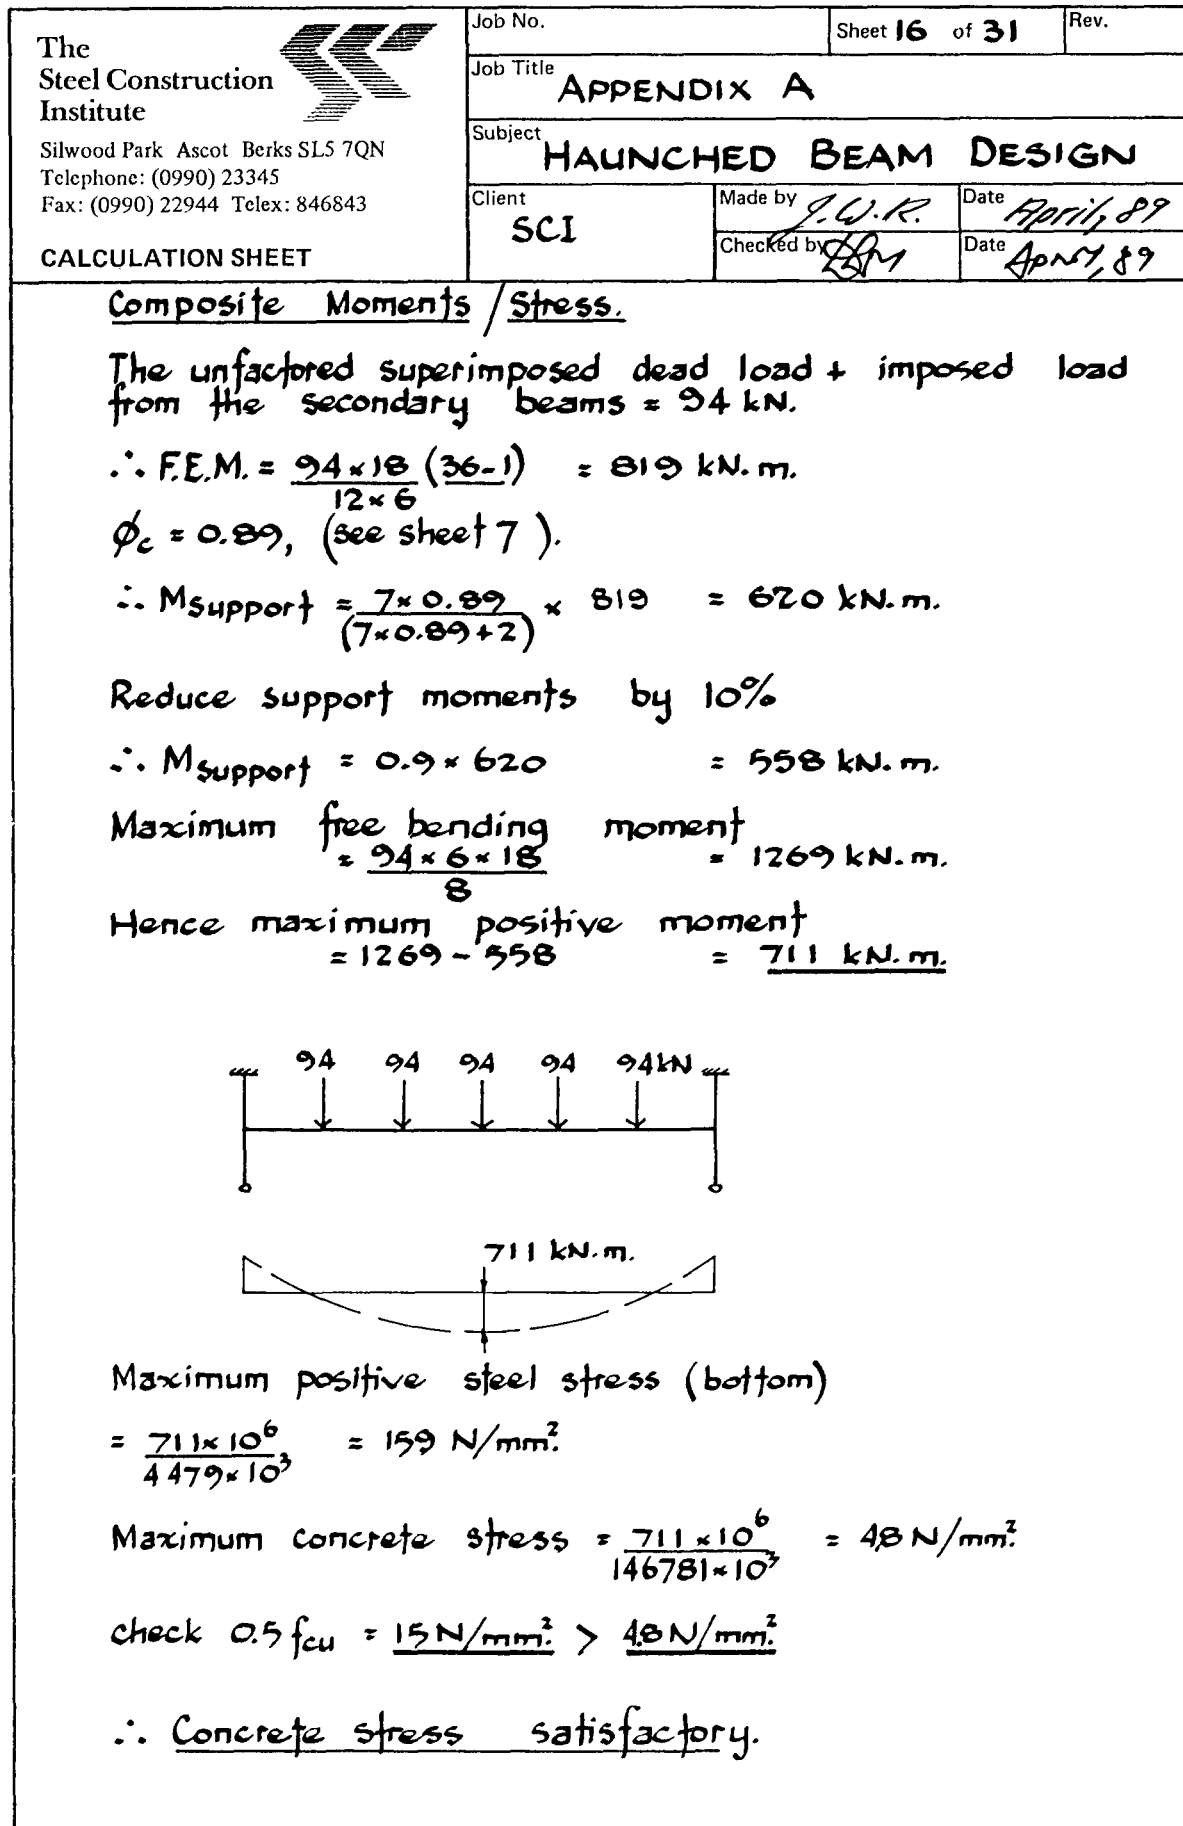 The
Steel Construction
Institute
Silwood Park Ascot Berks SL5 7QN
Telephone: (0990) 23345
Fax: (0990) 22944 Telex: 846843
CALCULATION SHEET
Job No.
Sheet 16 of 31
Rev.
Job Title APPENDIX A
Subject HAUNCHED BEAM DESIGN
Client SCI
Made by J.W.R.
Date April, 89
Checked by
Date April, 89
Composite Moments / Stress.
The unfactored superimposed dead load + imposed load
from the secondary beams = 94 kN.
∴ F.E.M. = 94 × 18 (36-1) = 819 kN.m.
12 × 6
ϕc = 0.89, (see sheet 7 ).
∴ Msupport = 7 × 0.89 × 819 = 620 kN.m.
(7×0.89+2)
Reduce support moments by 10%
∴ Msupport = 0.9 × 620 = 558 kN.m.
Maximum free bending moment
= 94 × 6 × 18 = 1269 kN.m.
8
Hence maximum positive moment
= 1269 - 558 = 711 kN.m.
94 94 94 94 94kN
711 kN.m.
Maximum positive steel stress (bottom)
= 711×10⁶ = 159 N/mm².
4479×10³
Maximum concrete stress = 711×10⁶ = 4.8 N/mm².
146781×10³
check 0.5 fcu = 15 N/mm². > 4.8 N/mm².
∴ Concrete stress satisfactory.